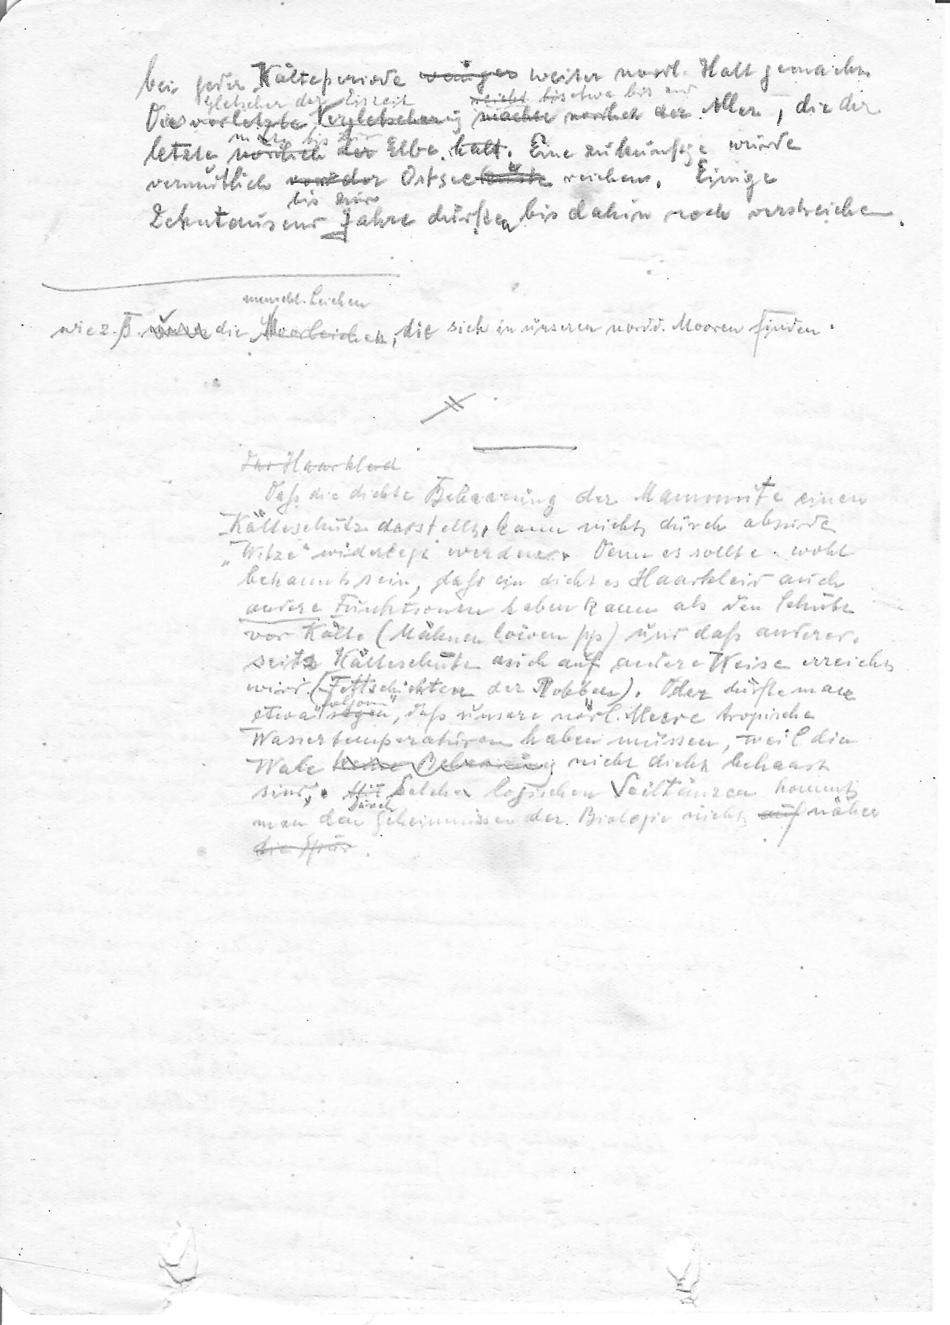 bei jeder Kälteperiode weniger weiter nördl. Halt gemacht.
Gletscher der Eiszeit reicht bis etwa bis zur
Die vorletzte Vergletscherung machte nördlich der Aller, die der
bis zur
letzte nördlich der Elbe halt. Eine zukünftige würde
vermutlich vor der Ostseeküste reichen. Einige
bis zur
Zehntausend Jahre dürften bis dahin noch verstreichen.
menschl. Leichen
wie z. B. die Moorleichen, die sich in unseren nordd. Mooren finden.
Das Haarkleid
Daß die dichte Behaarung der Mammute einen
Kälteschutz darstellt, kann nicht durch absurde
„Witze" widerlegt werden. Denn es sollte wohl
bekannt sein, daß ein dichtes Haarkleid auch
andere Funktionen haben kann als den Schutz
vor Kälte (Mähnen löwen pp) und daß anderer-
seits Kälteschutz auch auf andere Weise erreicht
wird (Fettschichten der Robben). Oder dürfte man
folgern
etwa sagen, daß unsere nördl. Meere tropische
Wassertemperaturen haben müssen, weil die
Wale keine Behaarung nicht dicht behaart
sind. Mit Solchen logischen Seiltänzen kommt
durch
man den Geheimnissen der Biologie nicht auf näher
die Spur.